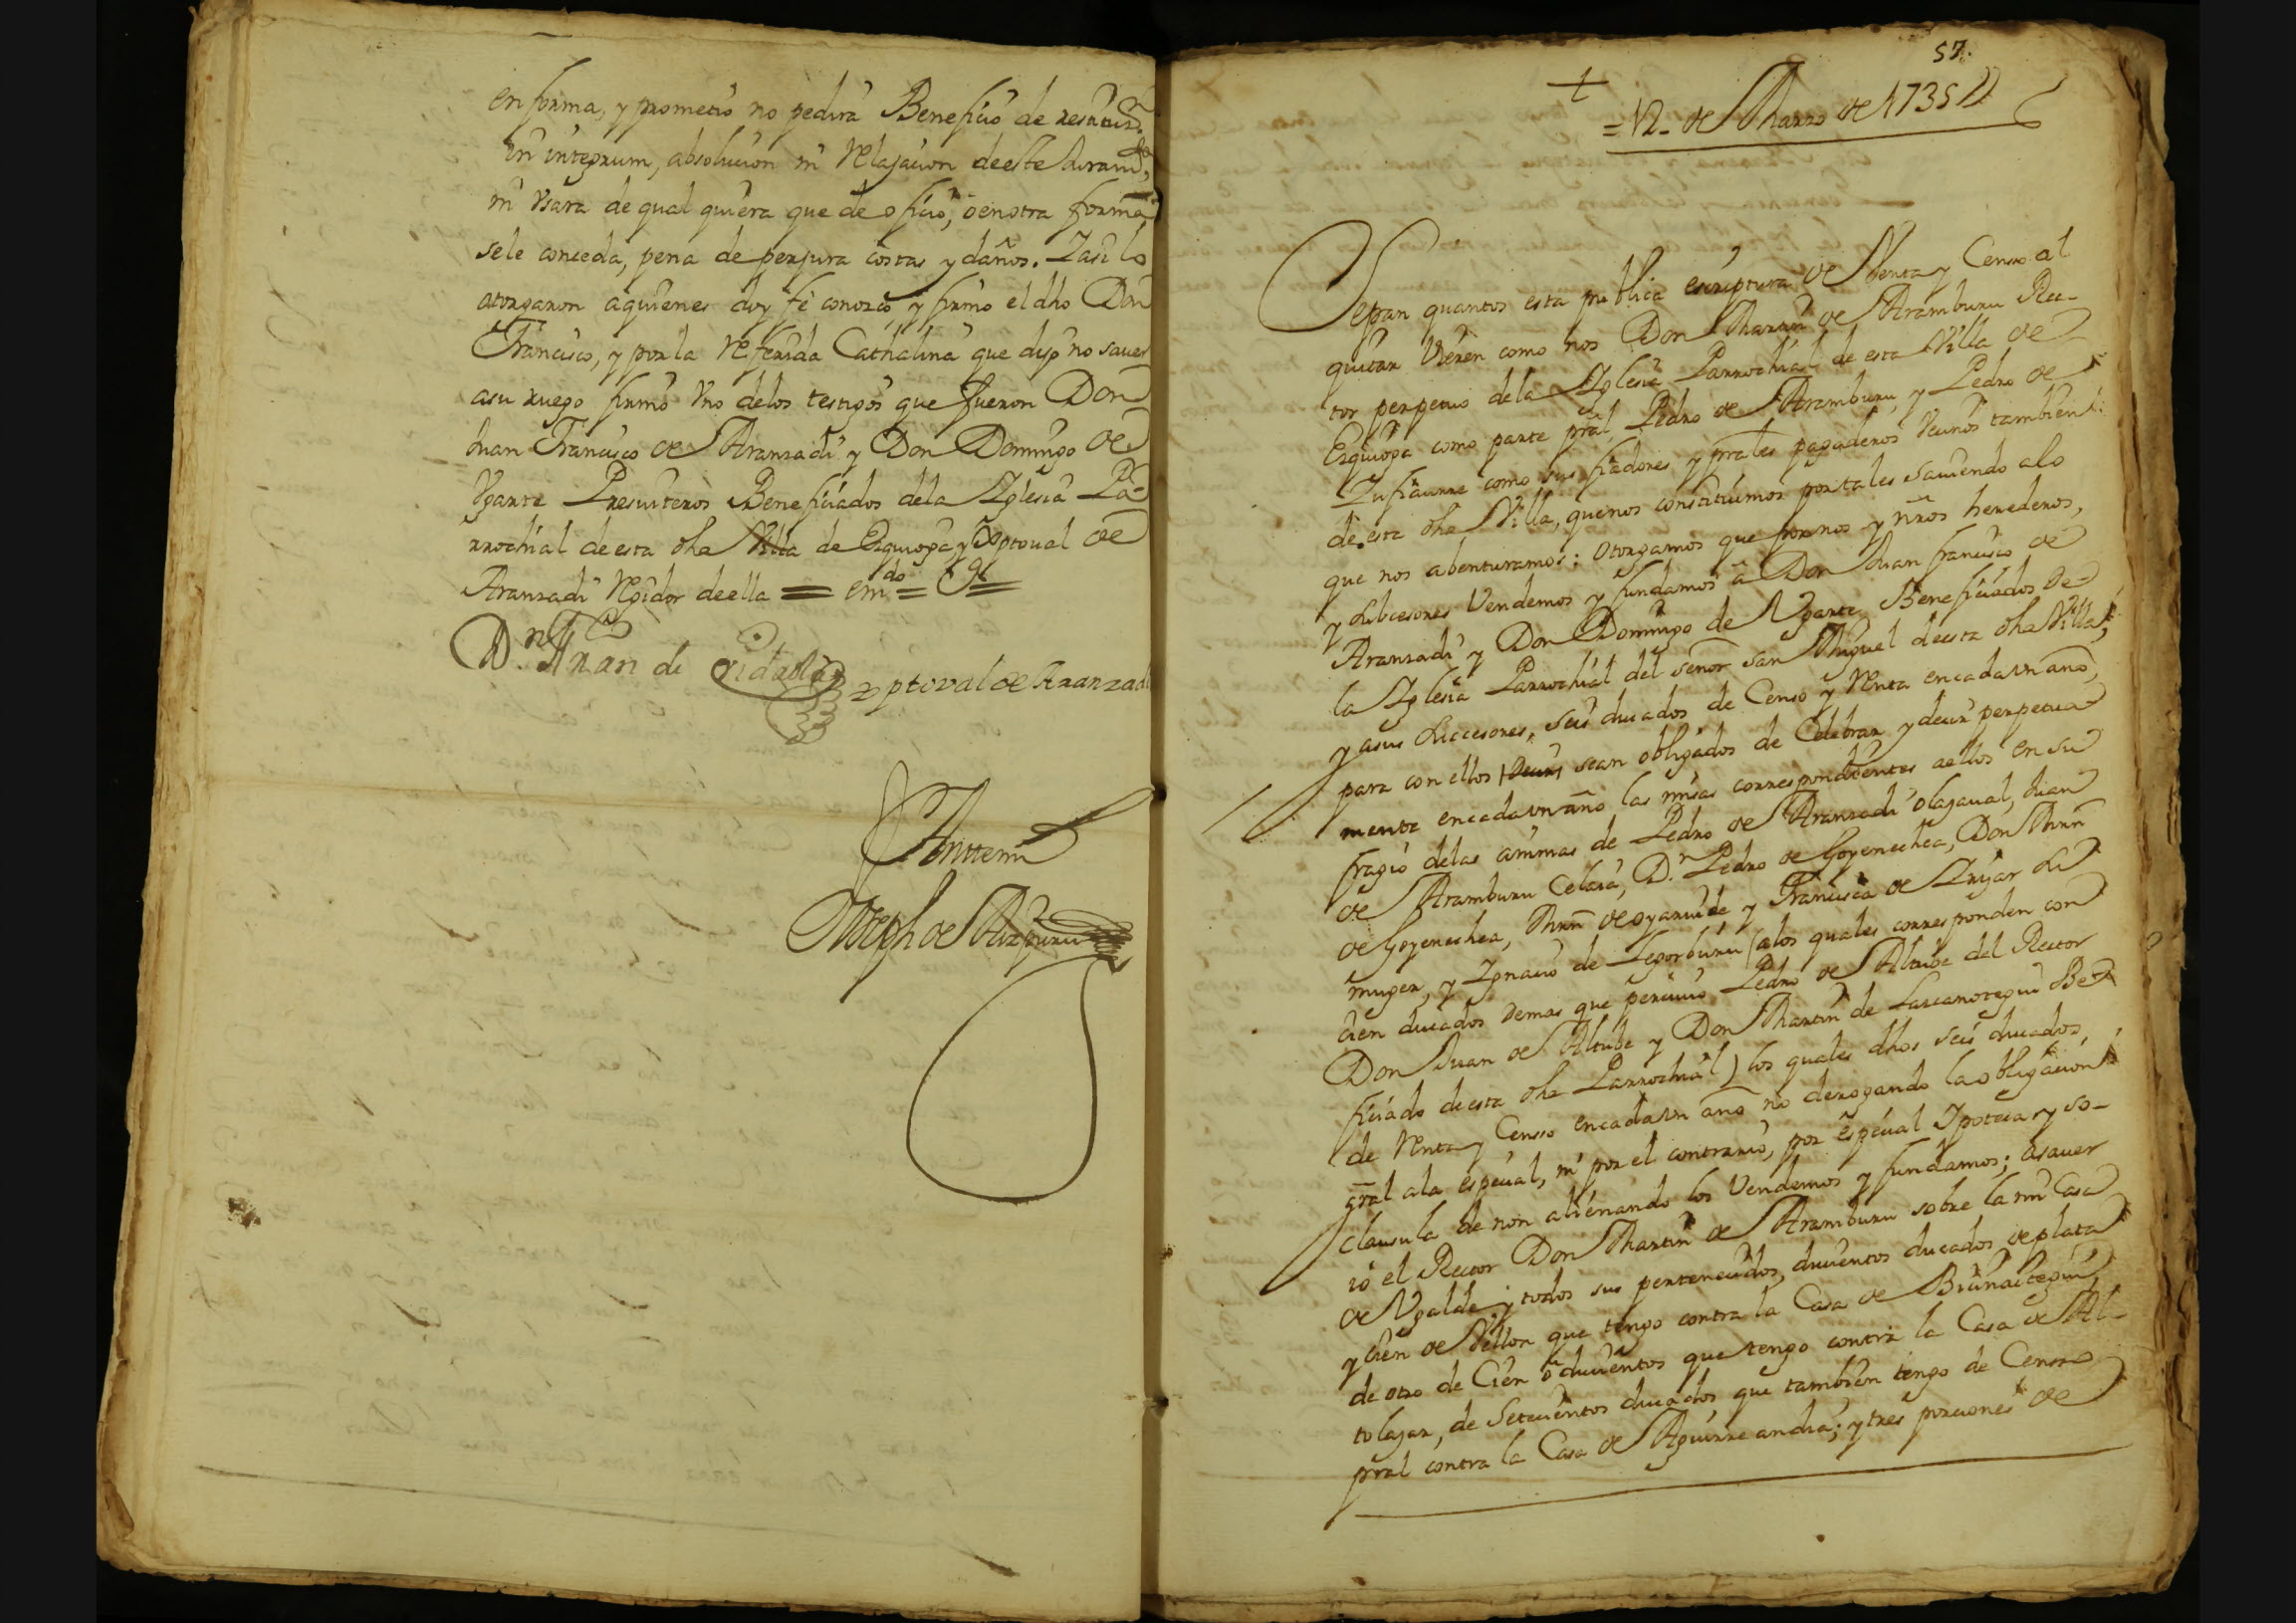 en forma, y prometió no pedirá Beneficio de restituz.n
in integrum, absolucion ni Relajacion deeste Juramto,
ni Vsara de qual quiera que de oficio, o en otra forma
sele conceda, pena de perjura costas y daños. Y asi lo
otorgaron aquienes doy fe conozco, y firmó el dho Don
Francisco, y por la Referida Cathalina que dijo no saver
asu ruego firmó Vno delos testigos que fueron Don
Juan Francisco de Aranzadi y Don Domingo de
Vgarte Presviteros Beneficiados dela Yglesia Pa-
rrochial de esta dha Villa de Ezquioga, y Xptoual de
Aranzadi Regidor de ella = em.do =
D.n Fran.co de Xptoval de Aranzadi
Antte mi
Joseph de Aizpuru
57.
= 12 de Marzo de 1735
Sepan quantos esta publica escriptura de Venta y Censo al
quitar Vieren como nos Don Martin de Aramburu Rec-
tor perpetuo dela Yglesia Parrochial de esta Villa de
Ezquioga como parte pral, Pedro de Aramburu, y Pedro de
Zufiaurre como sus fiadores y prales pagadores Vecinos tambien
de esta dha Villa, que nos constituimos por tales saviendo alo
que nos abenturamos: otorgamos que por nos y nros herederos,
y subcesores Vendemos y fundamos á Don Juan francisco de
Aranzadi y Don Domingo de Vgarte Beneficiados de
la Yglesia Parrochial del señor san Miguel deesta dha Villa,
y asus Succesores, seis ducados de Censo y Renta encadavn año,
para con ellos sean obligados de Celebrar y decir perpetua
mente encadavn año las misas correspondientes aellos en su
fragio delas animas de Pedro de Aranzadi olazaval, Juan
de Aramburu Celaia, D.n Pedro de Goyenechea, Don Mrn
de Goyenechea, Mrn de oyarvide, y Francisca de Yrizar su
muger, y Ygnacio de Legorburu (alos quales corresponden con
cien ducados demas que percivio Pedro de Altube del Rector
Don Juan de Altube y Don Martin de Lascanotegui Be-
ficiado deesta dha Parrochial) los quales dhos seis ducados,
de Renta y Censso encadavn año no derogando la obligacion
gral ala especial, ni por el contrario, por especial Ypoteca y so-
clausula de non alienando los Vendemos y fundamos; asaver
io el Rector Don Martin de Aramburu sobre la mi Casa
de Vgalde y todos sus pertenecidos, ducientos ducados de plata
y cien de Vellon que tengo contra la Casa de
de otro de Cien o ducientos que tengo contra la Casa de Al-
tolazar, de Setecientos ducados que tambien tengo de Censso
pral contra la Casa de Aguirre andia; y tres porciones de